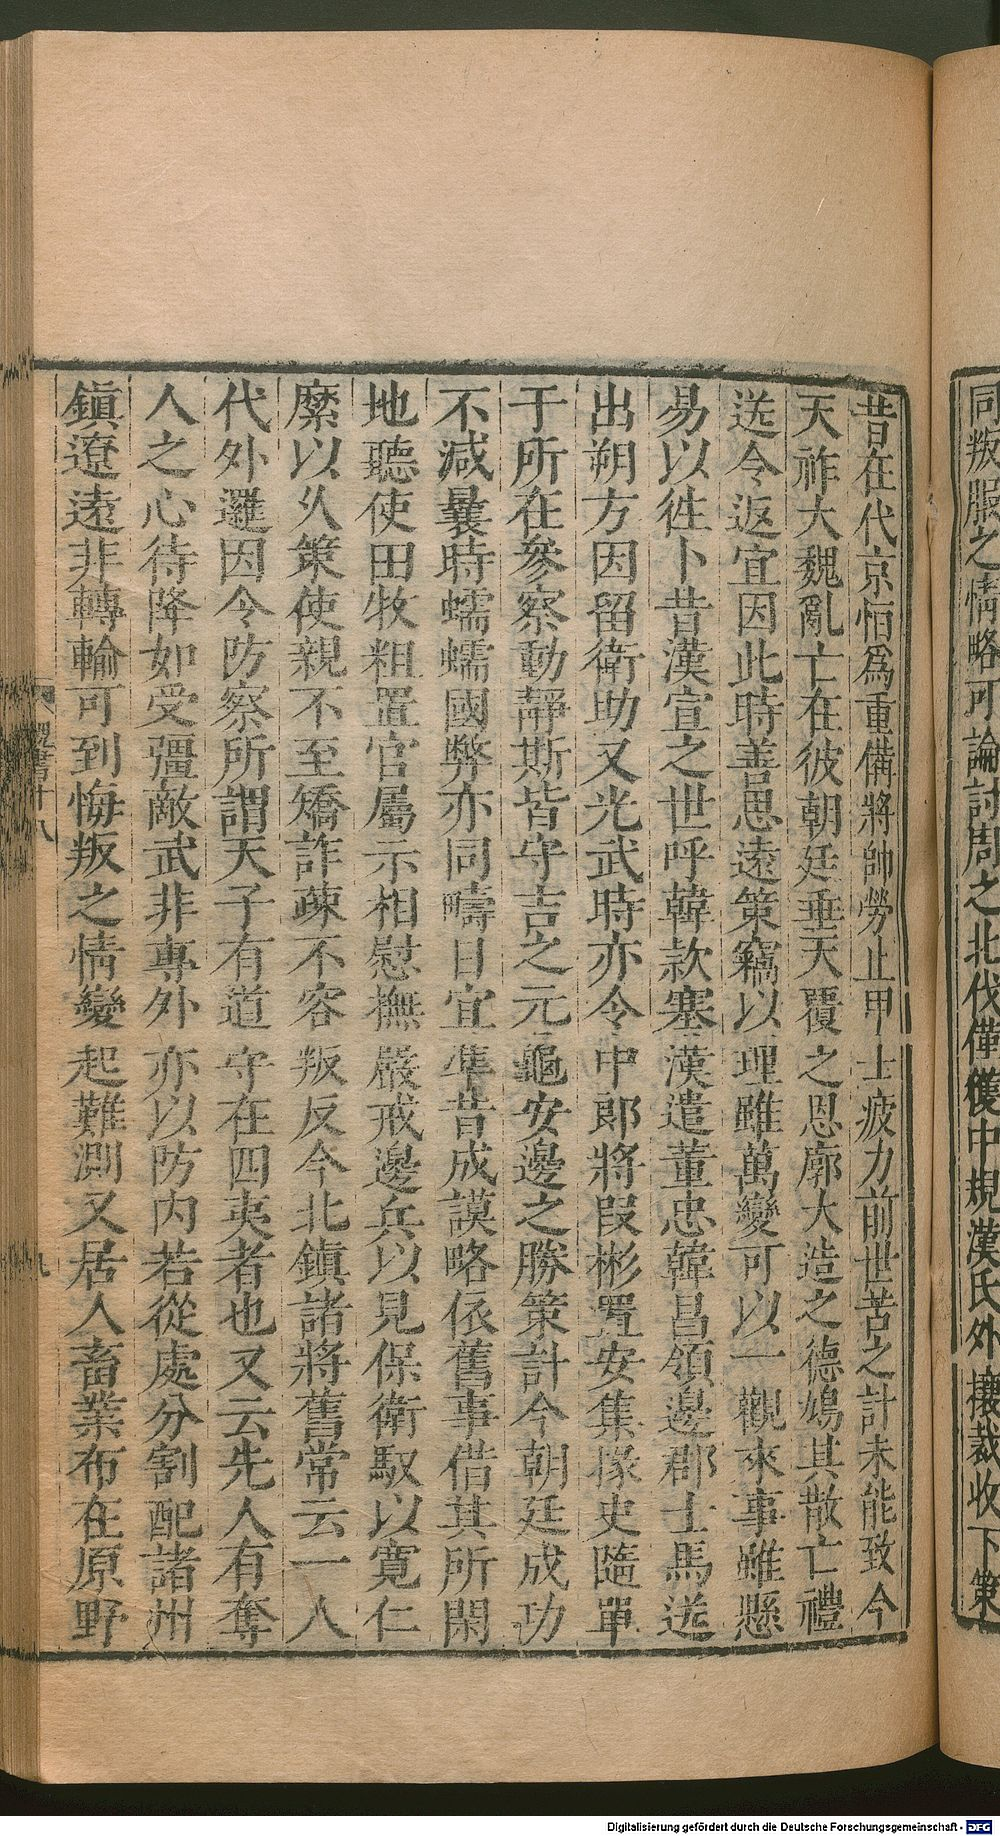 同叛服之情略可論討周之北伐僅獲中規漢氏外攘裁收下策
昔在代京恒爲重備將帥勞止甲士疲力前世苦之計未能致今
天祚大魏亂亡在彼朝廷垂天覆之恩廓大造之德鳩其散亡禮
送令返宜因此時善思遠策竊以理雖萬變可以一觀來事雖懸
易以徃卜昔漢宣之世呼韓款塞漢遣董忠韓昌領邊郡士馬送
出朔方因留衛助又光武時亦令中郎將段彬置安集掾史隨單
于所在參察動靜斯皆守吉之元龜安邊之勝策計今朝廷成功
不減曩時蠕蠕國弊亦同疇日宜準昔成謨略依舊事借其所閑
地聽使田牧粗置官屬示相慰撫嚴戒邊兵以見保衛馭以寬仁
縻以久策使親不至矯詐疎不容叛反今北鎮諸將舊常云一人
代外邏因令防察所謂天子有道守在四夷者也又云先人有奪
人之心待降如受彊敵武非專外亦以防内若從處分割配諸州
鎮遼遠非轉輸可到悔叛之情變起難測又居人畜業布在原野
魏書十八
九
Digitalisierung gefördert durch die Deutsche Forschungsgemeinschaft - DFG